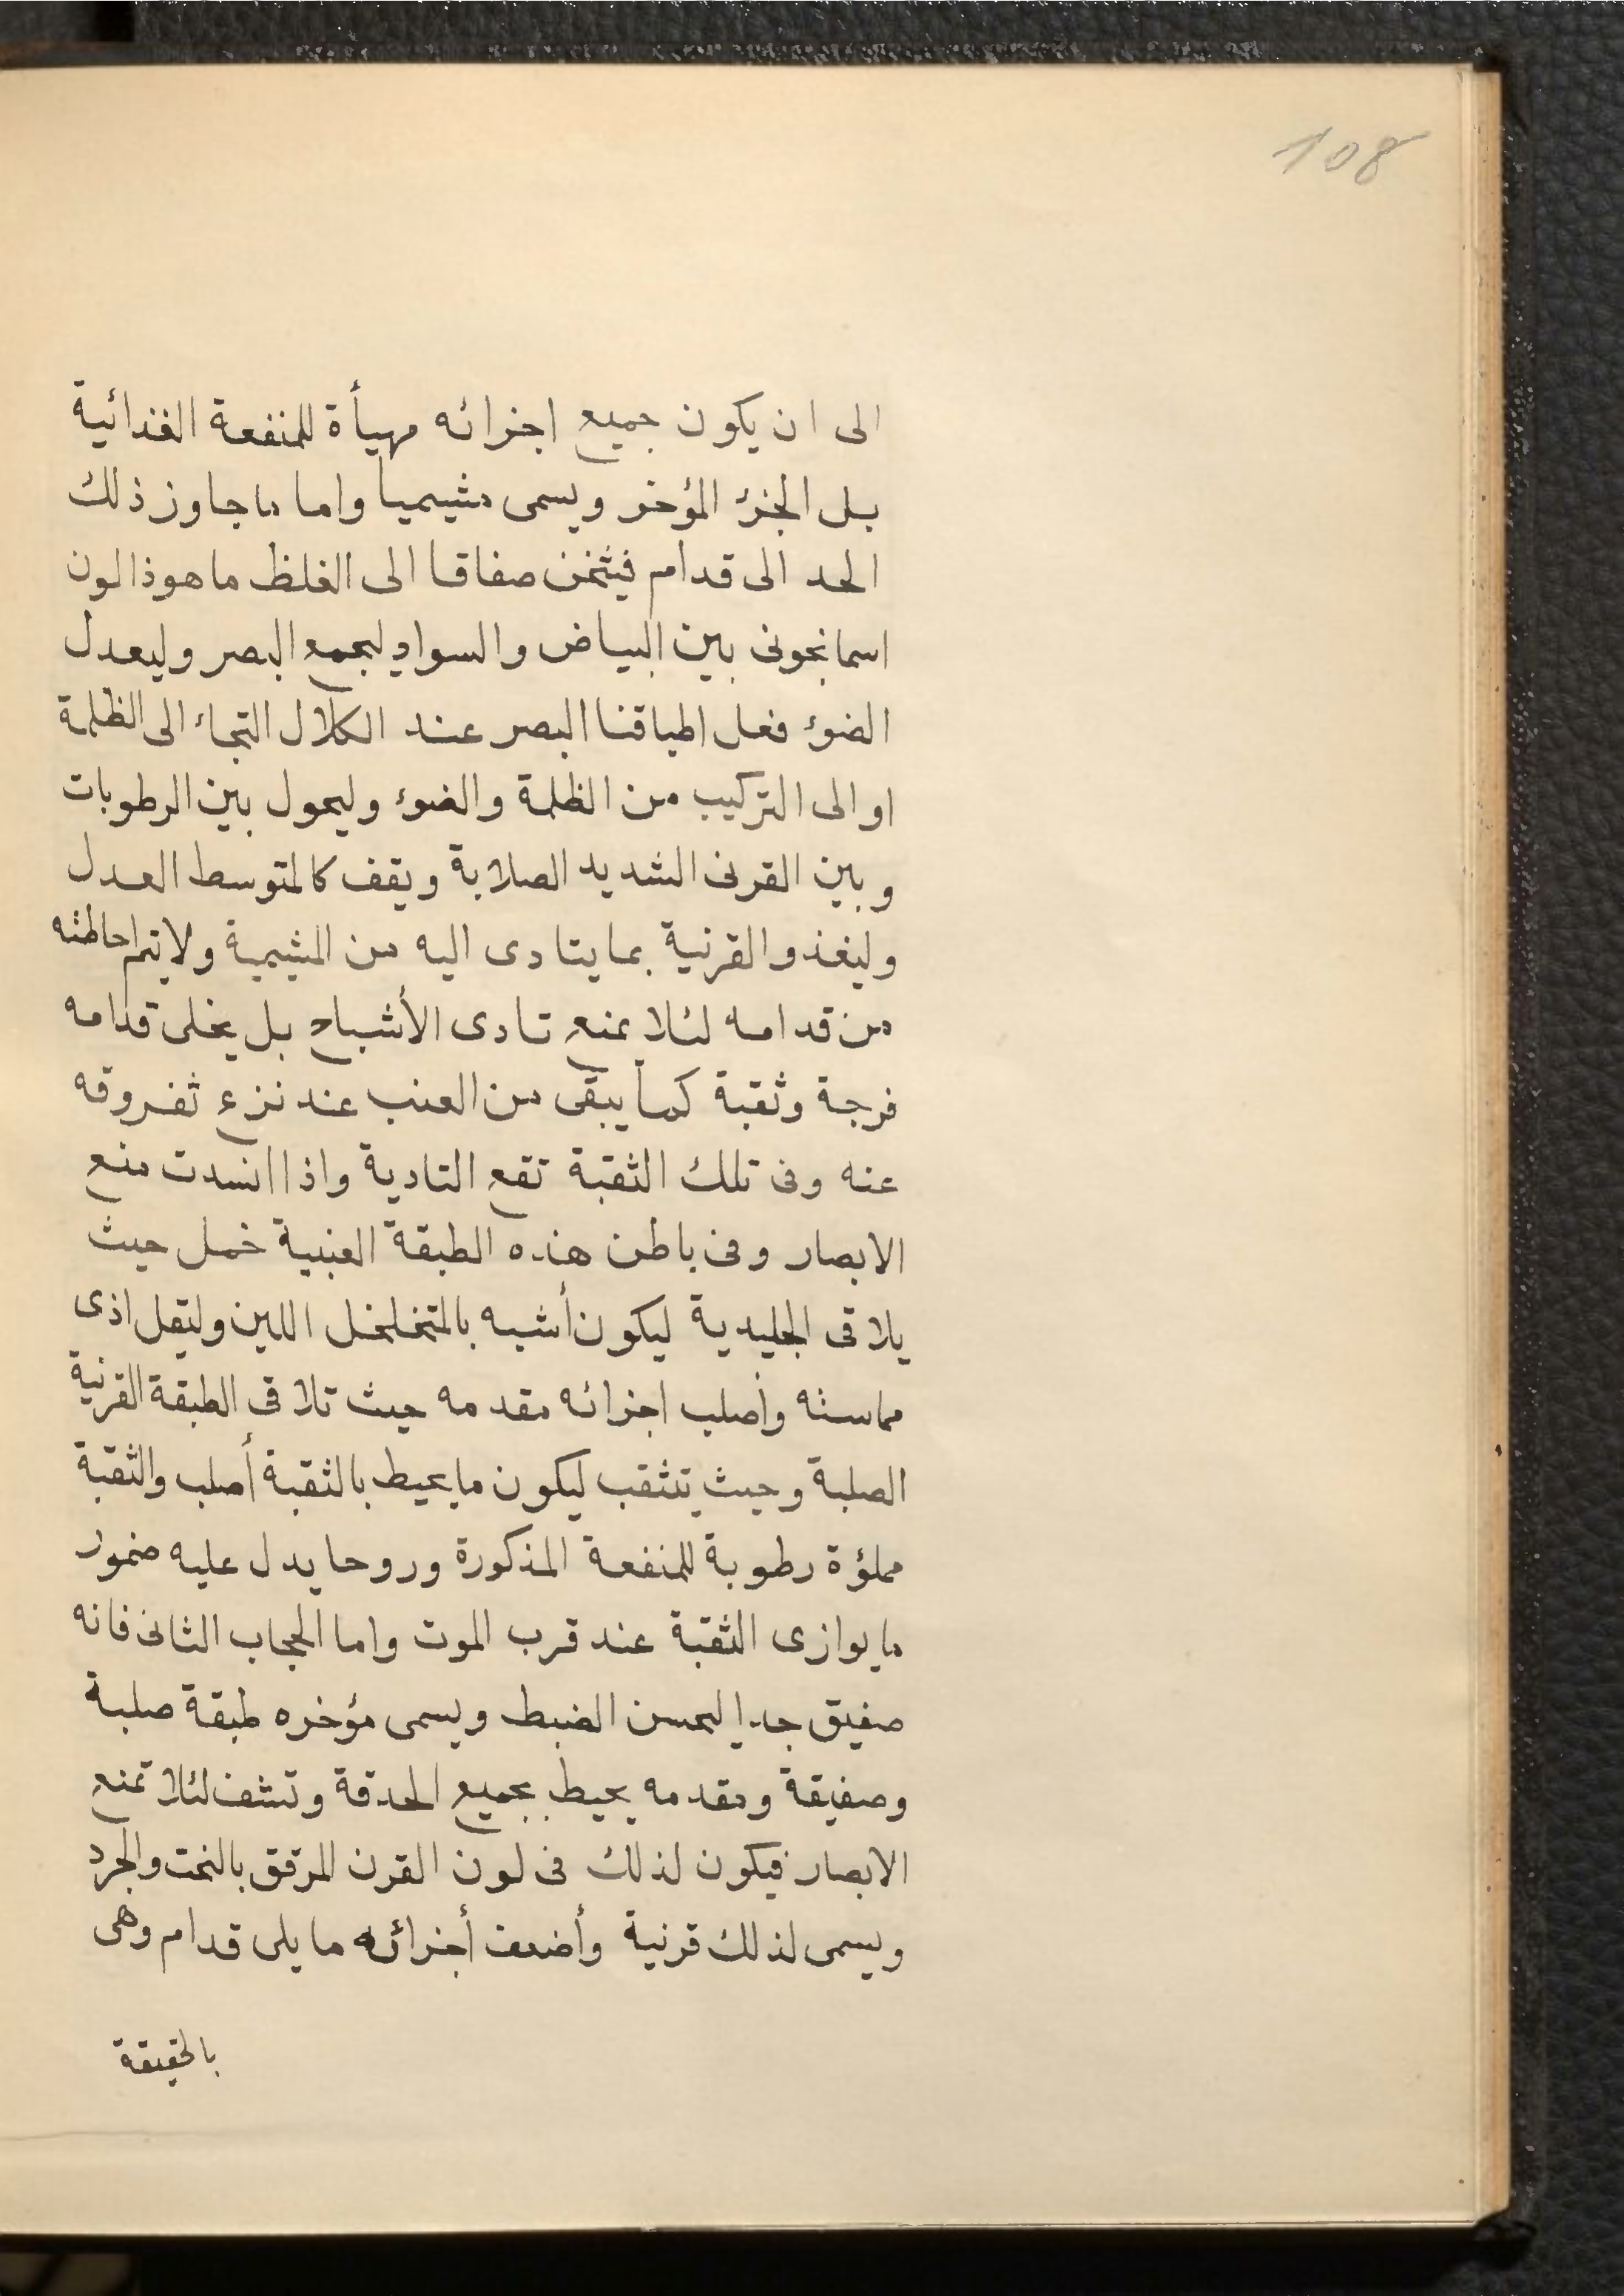 108
الى ان يكون جميع اجزائه مهيأة للمنفعة الغذائية
بل الجزء المؤخر ويسمى مشيميا واما ما جاوز ذلك
الحد الى قدام فيثخن صفاقا الى الغلظ ما هو ذا لون
اسمانجونى بين البياض والسواد ليجمع البصر وليعدل
الضوء فعل اطباقنا البصر عند الكلال التجاء الى الظلمة
او الى التركيب من الظلمة والضوء وليحول بين الرطوبات
وبين القرنى الشديد الصلابة ويقف كالمتوسط العدل
وليغذو القرنية بما يتادى اليه من المشيمية ولا يتم احاطته
من قدامه لئلا يمنع تادى الأشباح بل يخلى قدامه
فرجة وثقبة كما يبقى من العنب عند نزع ثفروقه
عنه وفى تلك الثقبة تقع التادية واذا انسدت منع
الابصار وفى باطن هذه الطبقة العنبية خمل حيث
يلاقى الجليدية ليكون أشبه بالمتخلخل اللين وليقل اذى
مماسته وأصلب اجزائه مقدمه حيث تلاقى الطبقة القرنية
الصلبة وحيث يتثقب ليكون ما يحيط بالثقبة أصلب والثقبة
مملؤة رطوبة للمنفعة المذكورة وروحا يدل عليه ضمور
ما يوازى الثقبة عند قرب الموت واما الحجاب الثانى فانه
صفيق جدا ليحسن الضبط ويسمى مؤخره طبقة صلبة
وصفيقة ومقدمه يحيط بجميع الحدقة وتشف لئلا تمنع
الابصار فيكون لذلك فى لون القرن المرقق بالنحت والجرد
ويسمى لذلك قرنية وأضعف أجزائه ما يلى قدام وهى
بالحقيقة